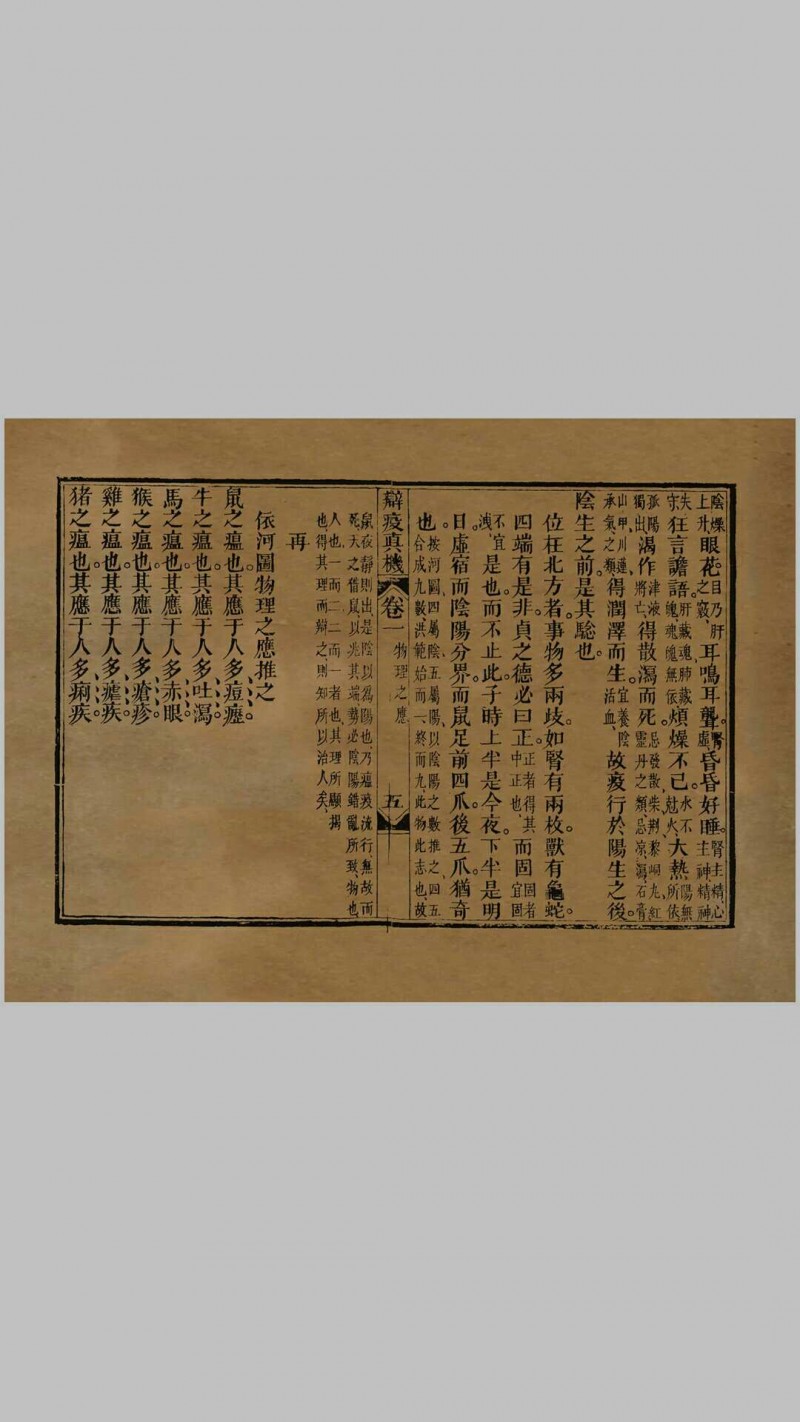 陰燥上升眼花。目乃肝之竅、耳鳴耳聾。腎虛昏昏好睡。腎主精心主神精神
失守狂言譫語。肝藏魂肺藏魄魂魄無依煩燥不已。水不尅火、大熱陽無所依
孤陽獨出渴作津液將亡、得散瀉而死。忌發散柴荆黎峒丸紅靈丹之類忌凉瀉石膏
山甲川連承氣之類得潤澤而生。宜養陰活血、故疫行於陽生之後。
陰生之前。是其驗也。
位在北方者。事物多兩歧。如腎有兩枚。獸有龜蛇。
四端有是非。貞之德必曰正。正者得其中正也、而固固者宜固
不宜洩、是也。而不止此。子時上半是今夜。下半是明
日。虛宿而陰陽分界。而鼠足前四爪。後五爪。猶奇
也。按河圖四屬陰、五屬陽、以陰陽之數推之、四五合成九數、洪範始而一、終而九、此物此志也、故
辯疫真機 卷一 物理之應 五
鼠夜靜則出、是陰以爲陽也、乃瘟疫流行、無故而死、天之借鼠以兆其端、勢必陰陽錯亂所致、物也、
人也、一而二、二而一者也、其理所顯揭也、得其理而辯之、則知所以治人矣、
再
依河圖物理之應推之
鼠之瘟也。其應于人多痘瘞。
牛之瘟也。其應于人多吐瀉。
馬之瘟也。其應于人多赤眼。
猴之瘟也。其應于人多瘡疹。
雞之瘟也。其應于人多瘧疾。
猪之瘟也。其應于人多痢疾。